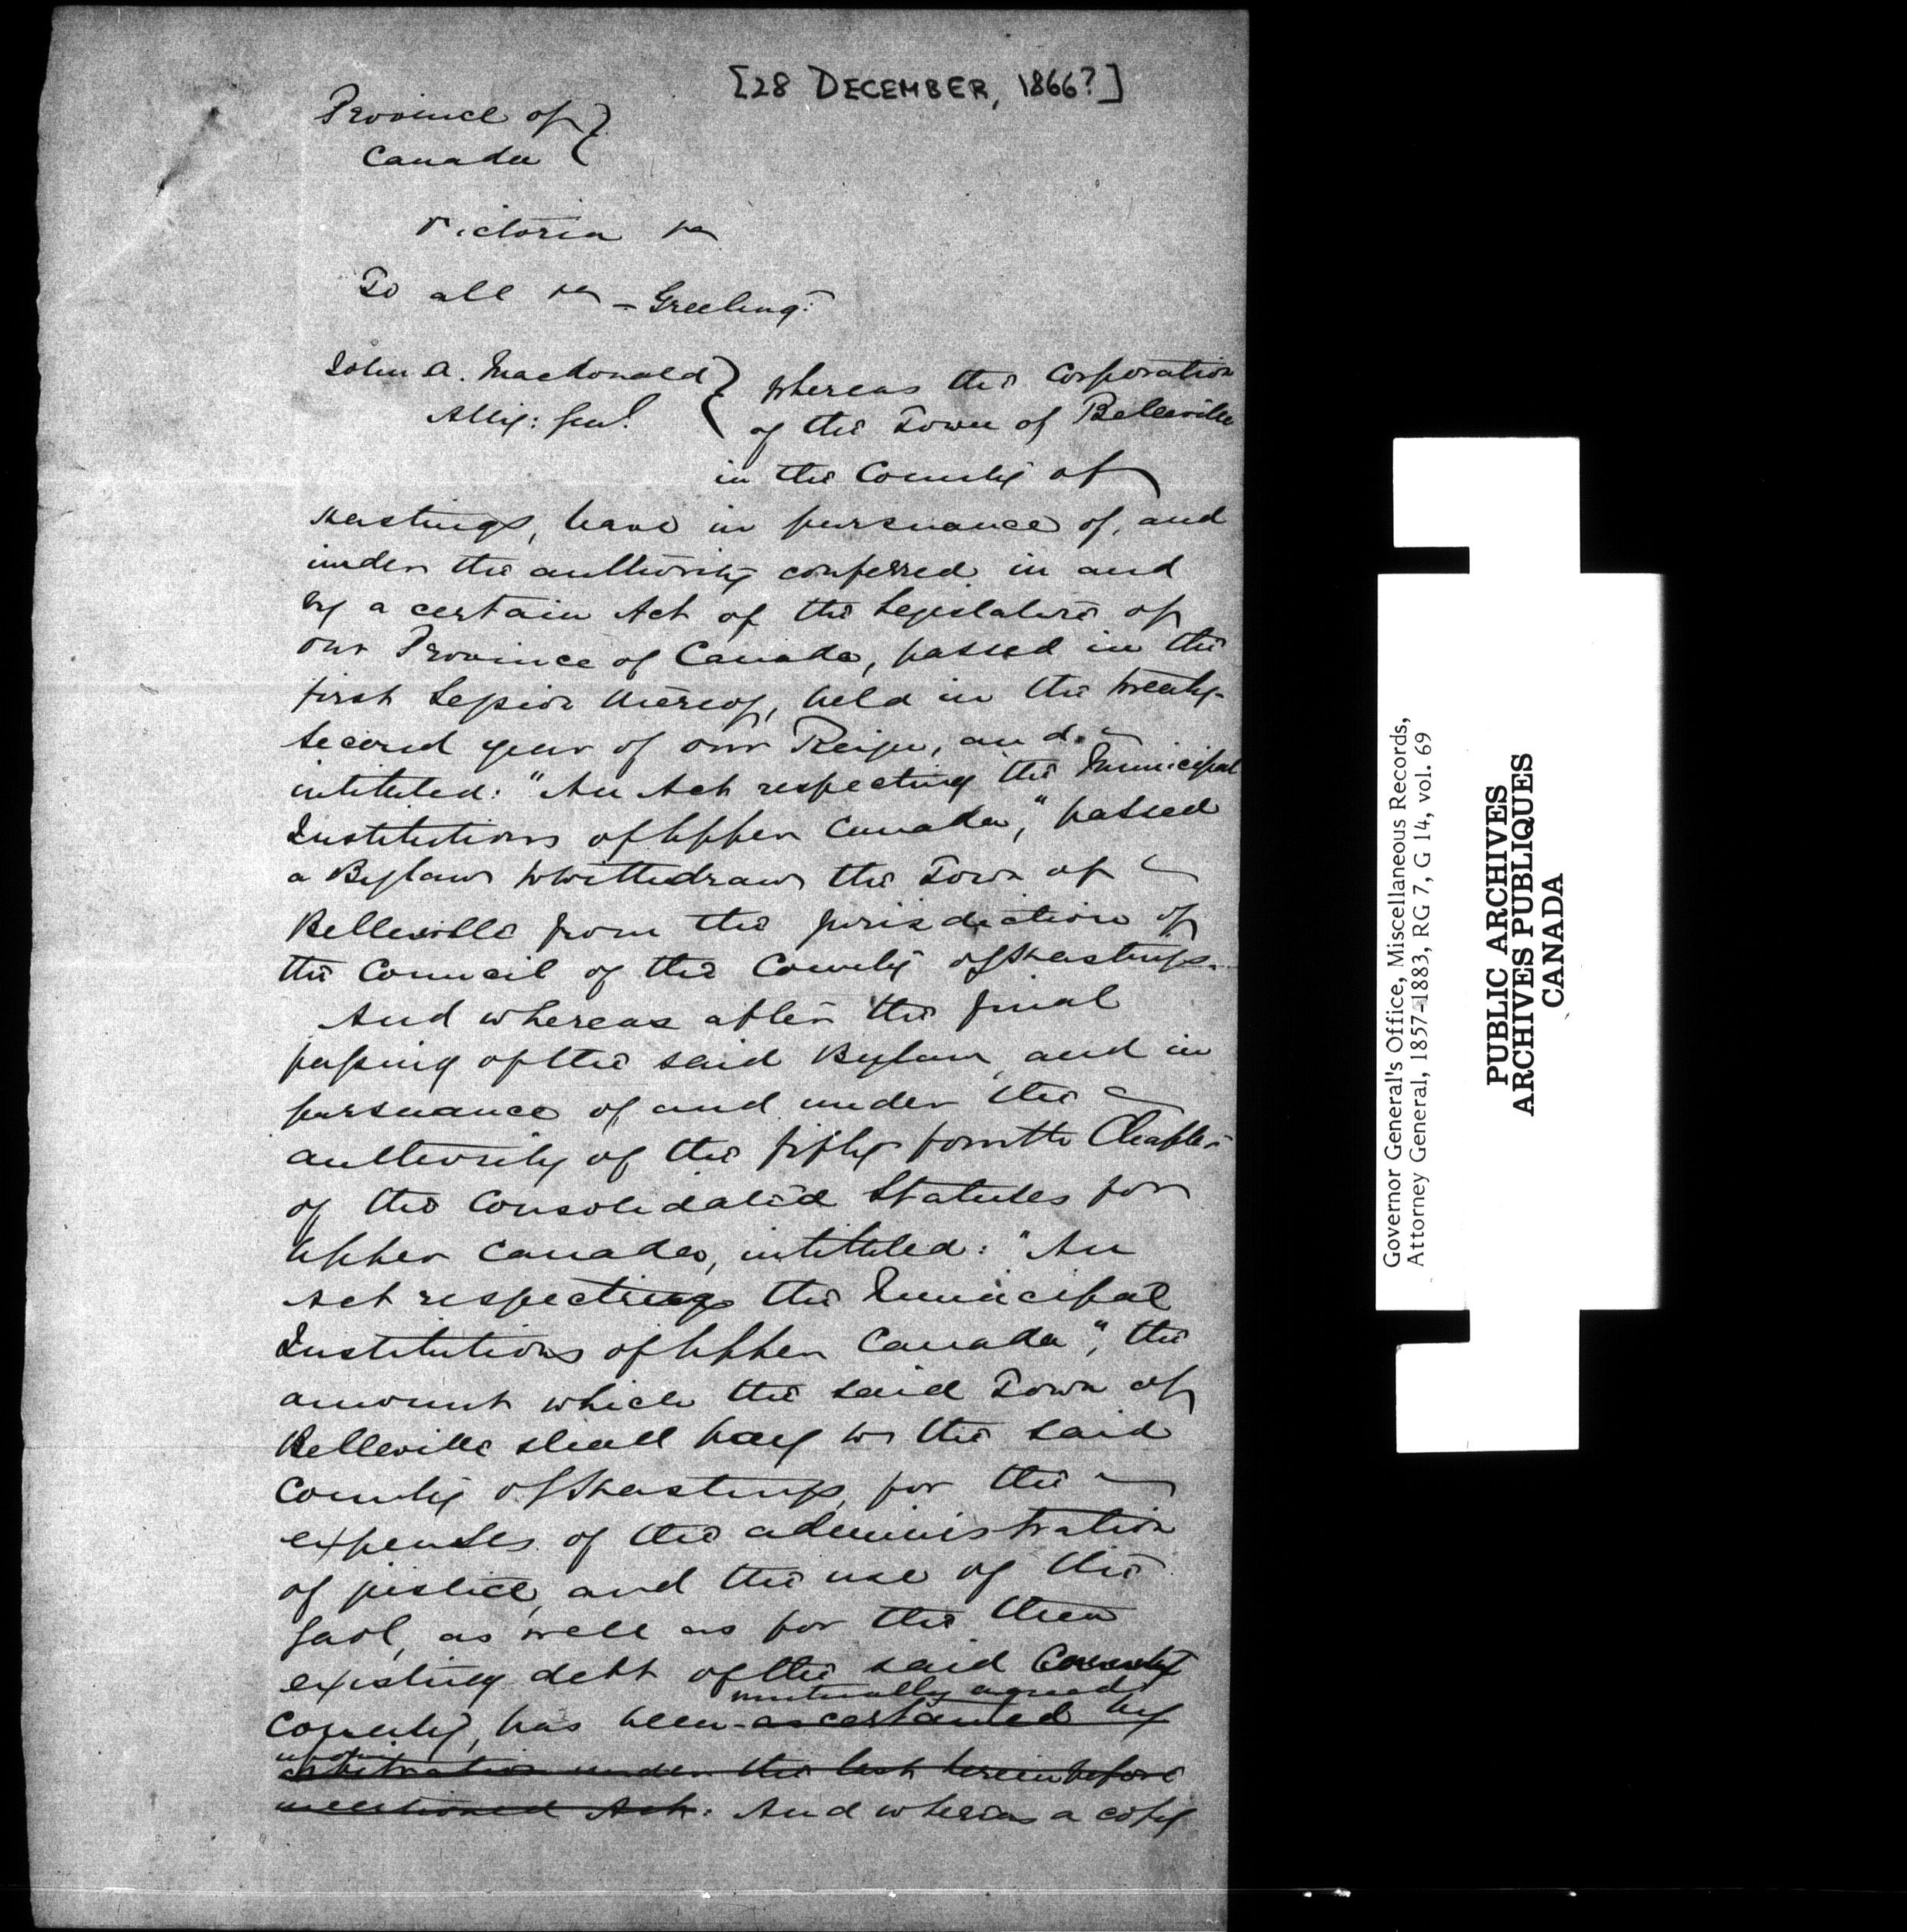 [28 DECEMBER, 1866?]
Province of
Canada
Victoria &c
To all &c – Greeting:
John A. Macdonald
Atty: Genl.
Whereas the Corporation
of the Town of Belleville
in the County of
Hastings, have in pursuance of, and
under the authority conferred in and
by a certain Act of the Legislature of
our Province of Canada, passed in the
first Session thereof, held in the twenty-
second year of our Reign, and
intituled: "An Act respecting the Municipal
Institutions of Upper Canada," passed
a Bylaw to withdraw the Town of
Belleville from the jurisdiction of
the Council of the County of Hastings.
And whereas after the final
passing of the said Bylaw, and in
pursuance of and under the
authority of the fifty fourth Chapter
of the Consolidated Statutes for
Upper Canada, intituled: "An
Act respecting the Municipal
Institutions of Upper Canada", the
amount which the said Town of
Belleville shall pay to the said
County of Hastings, for the
expenses of the administration
of justice, and the use of the
Gaol, as well as for the then
existing debt of the said County
mutually agreed
County, has been ascertained by
upon
arbitration under the last hereinbefore
mentioned Act: And whereas a copy
Governor General's Office, Miscellaneous Records,
Attorney General, 1857-1883, RG 7, G 14, vol. 69
PUBLIC ARCHIVES
ARCHIVES PUBLIQUES
CANADA